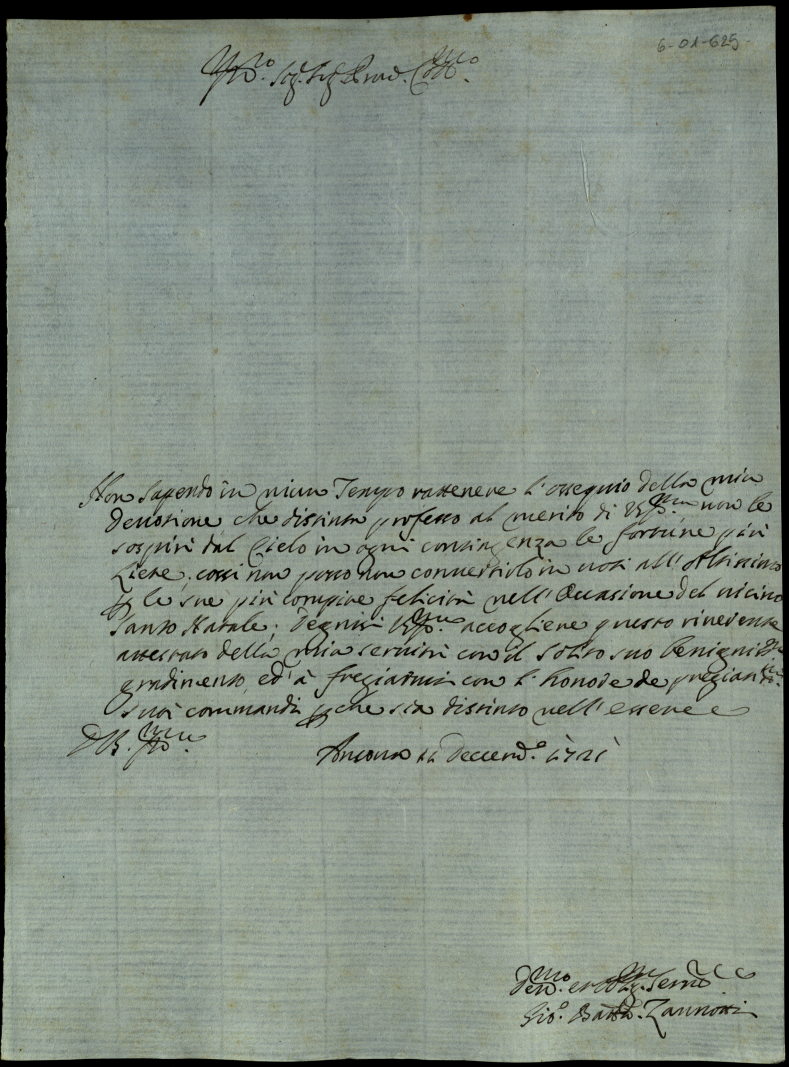 6-01-625
Ill.mo Sig. Sig. Pron. Coll.mo
Non sapendo in niun Tempo rattenere l'ossequio della mia
devotione che distinta professo al merito di VS Ill.ma non le
sospiri dal Cielo in ogni contingenza le fortune più
Liete; cossì non posso non convertirlo in voti all'Altissimo
p le sue più compite felicità nell'Occasione del vicino
Santo Natale; Degnisi VS Ill.ma accogliere questo riverente
attestato della mia servitù con il solito suo benigniss.mo
gradimento, ed à freggiarmi con l'honore de preggiatiss.mi
suoi commandi p che sia distinto nell'essere
D VS. Ill.ma
Ancona Decem.e 1721
Dev.mo et Obblig. Serv.re
Gio. Batta. Zannotti